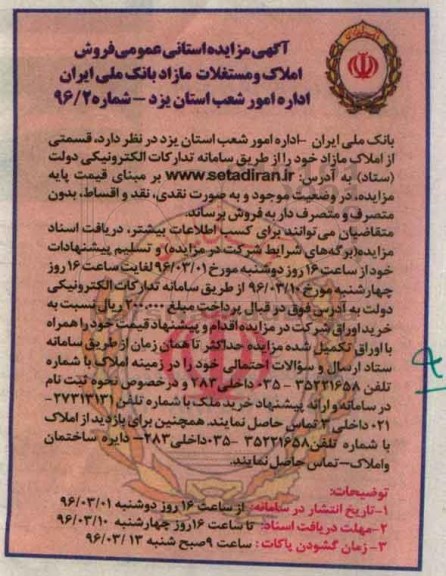 آگهی مزایده استانی عمومی فروش
املاک و مستغلات مازاد بانک ملی ایران
اداره امور شعب استان یزد – شماره ۹۶/۲
بانک ملی ایران –اداره امور شعب استان یزد در نظر دارد، قسمتی
از املاک مازاد خود را از طریق سامانه تدارکات الکترونیکی دولت
(ستاد) به آدرس: www.setadiran.ir بر مبنای قیمت پایه
مزایده، در وضعیت موجود و به صورت نقدی، نقد و اقساط، بدون
متصرف و متصرف دار به فروش برساند.
متقاضیان می توانند برای کسب اطلاعات بیشتر، دریافت اسناد
مزایده(برگه های شرایط شرکت در مزایده) و تسلیم پیشنهادات
خود از ساعت ۱۶ روز دوشنبه مورخ ۹۶/۰۳/۰۱ لغایت ساعت ۱۶ روز
چهارشنبه مورخ ۹۶/۰۳/۱۰ از طریق سامانه تدارکات الکترونیکی
دولت به آدرس فوق در قبال پرداخت مبلغ ۲۰۰.۰۰۰ ریال نسبت به
خرید اوراق شرکت در مزایده اقدام و پیشنهاد قیمت خود را همراه
با اوراق تکمیل شده مزایده حداکثر تا همان زمان از طریق سامانه
ستاد ارسال و سؤالات احتمالی خود را در زمینه املاک با شماره
تلفن ۳۵۲۲۱۶۵۸ – ۰۳۵ داخلی ۲۸۳ و درخصوص نحوه ثبت نام
در سامانه و ارائه پیشنهاد خرید ملک با شماره تلفن ۲۷۳۱۳۱۳۱–
۰۲۱ داخلی ۲ تماس حاصل نمایند. همچنین برای بازدید از املاک
با شماره تلفن ۳۵۲۲۱۶۵۸ –۰۳۵ داخلی ۲۸۳– دایره ساختمان
واملاک–تماس حاصل نمایند.
توضیحات:
۱–تاریخ انتشار در سامانه: از ساعت ۱۶ روز دوشنبه ۹۶/۰۳/۰۱
۲–مهلت دریافت اسناد: تا ساعت ۱۶روز چهارشنبه ۹۶/۰۳/۱۰
۳– زمان گشودن پاکات: ساعت ۹صبح شنبه ۹۶/۰۳/۱۳